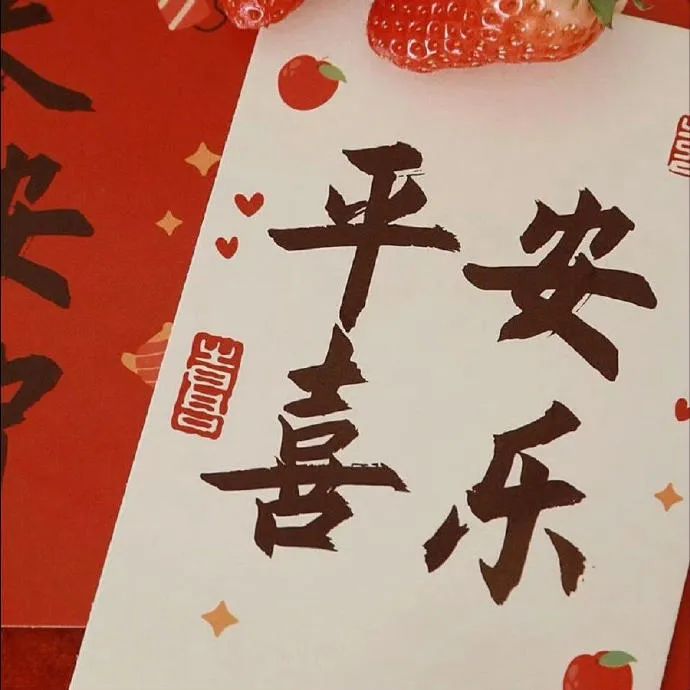 平安
喜乐
安